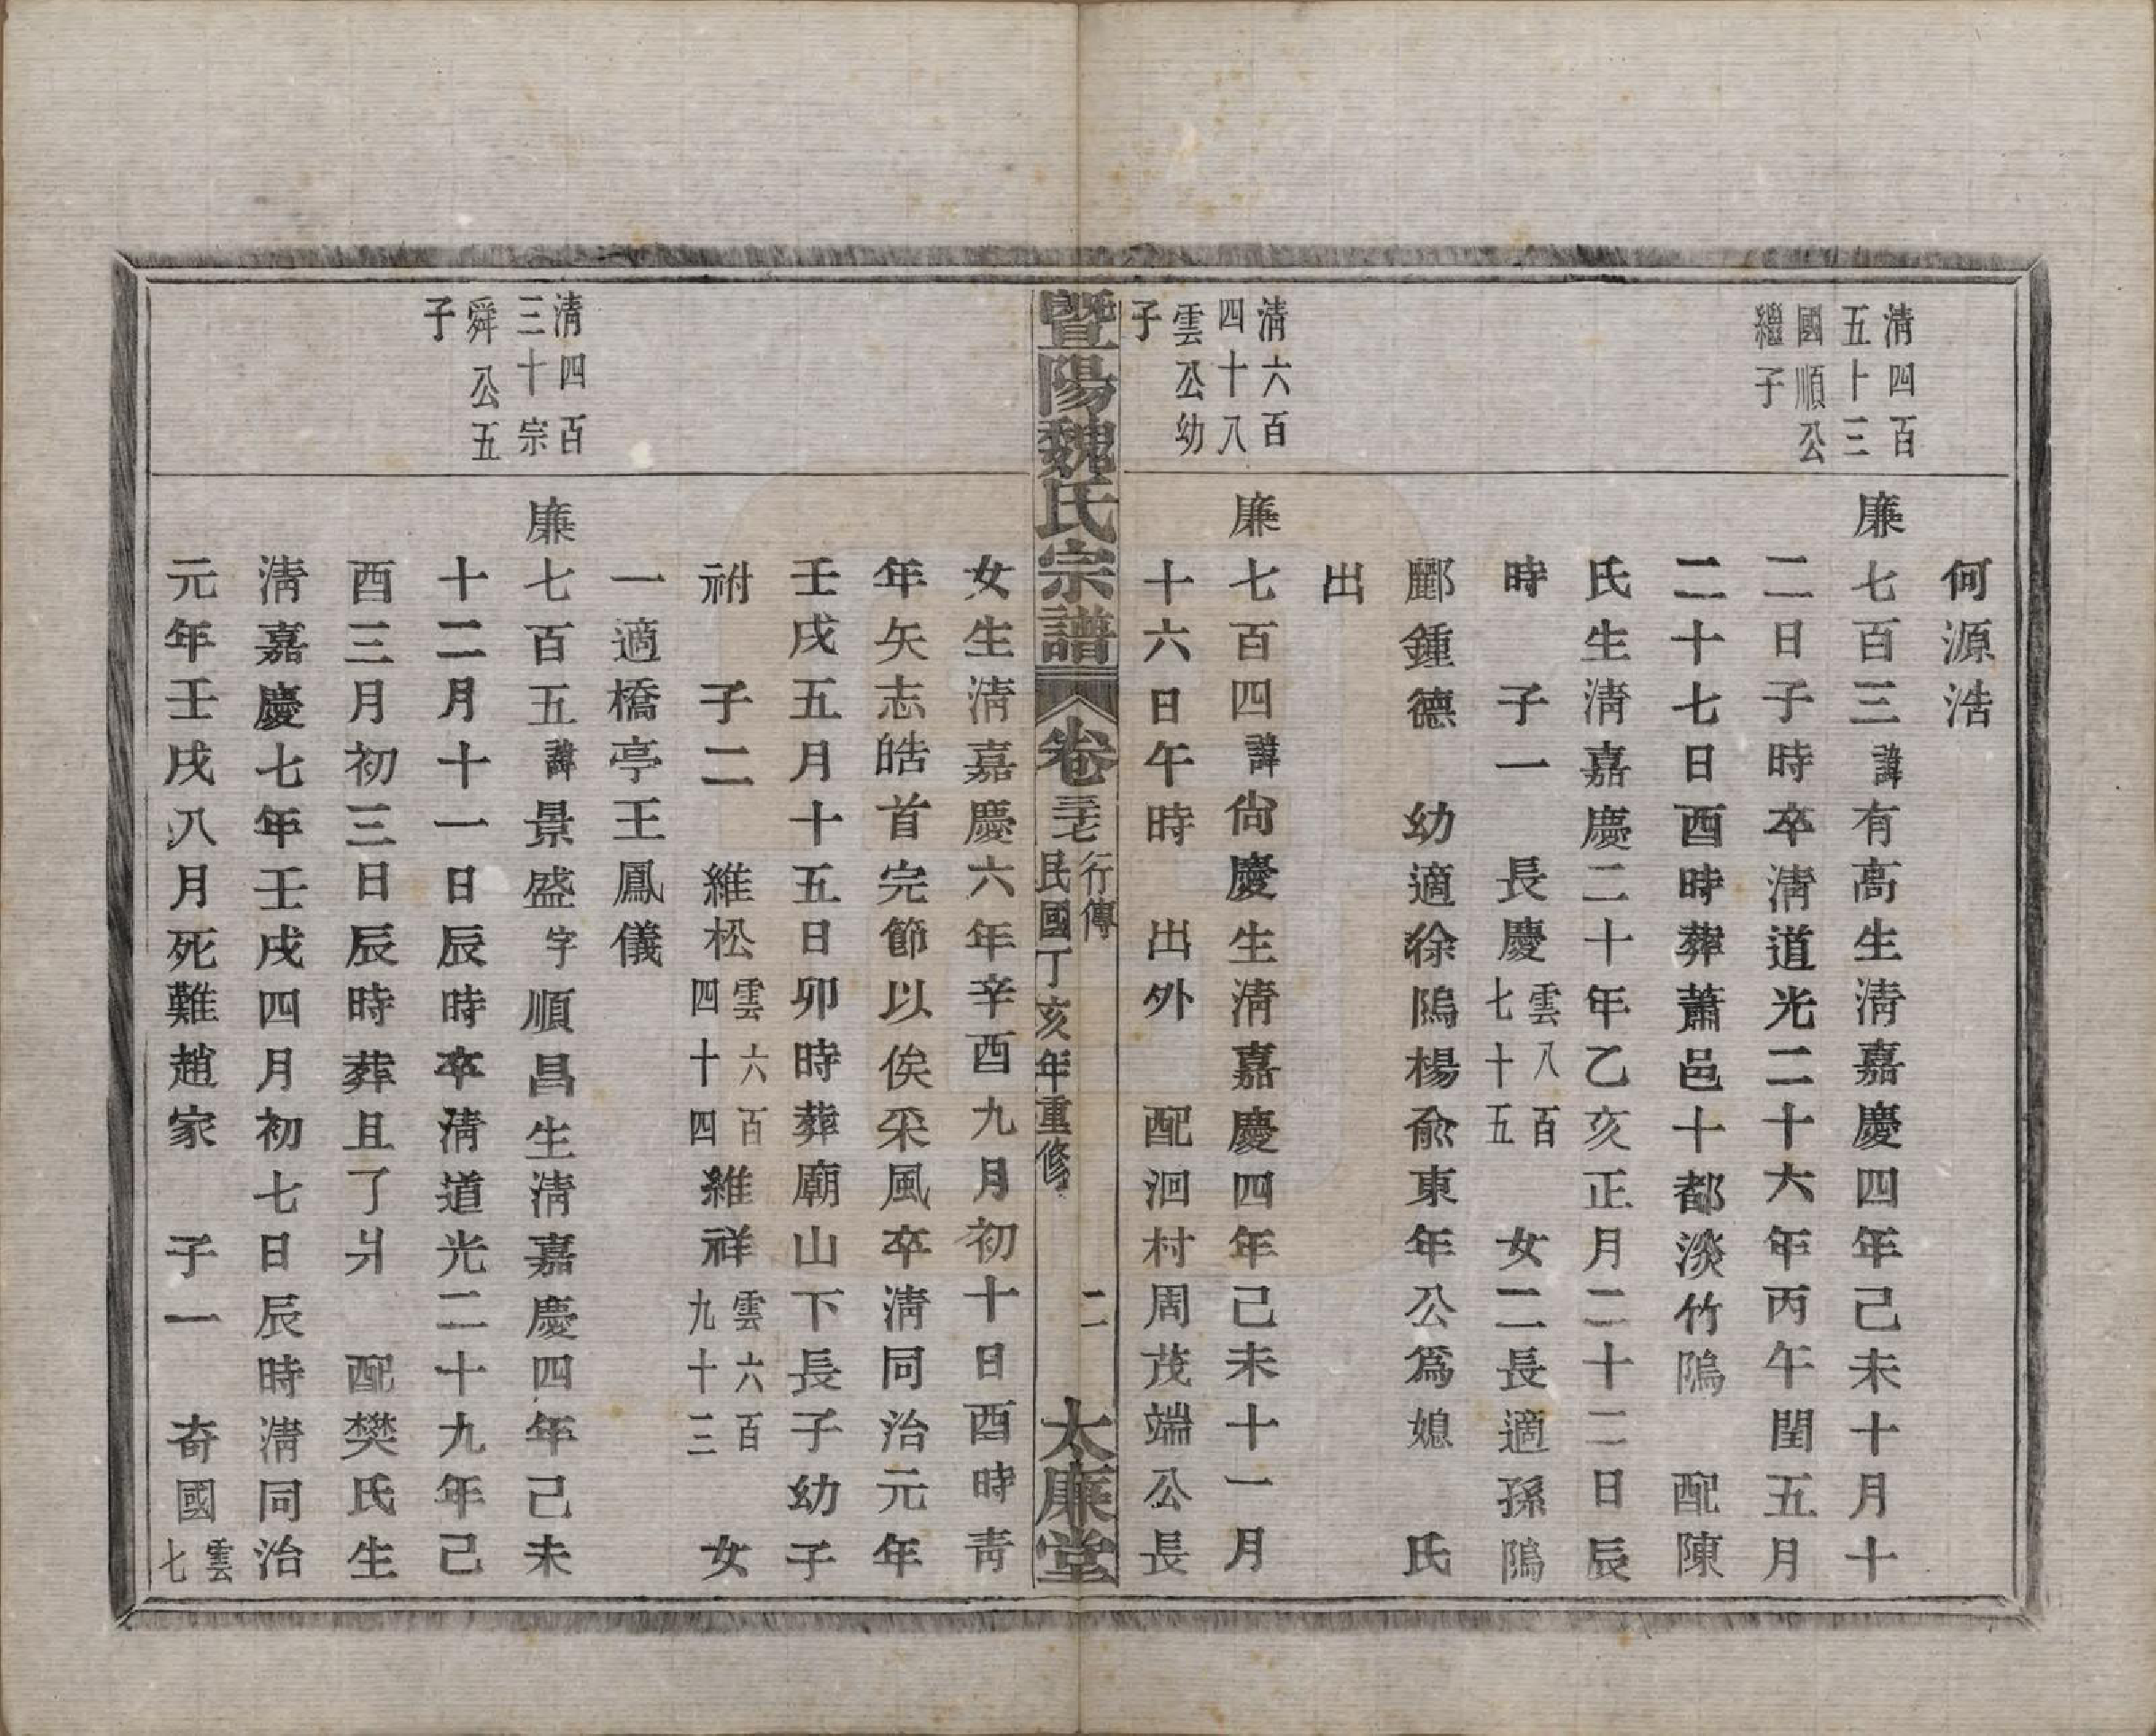 何源浩
清四百
五十三
國順公
繼子
廉七百三諱有高生清嘉慶四年己未十月十
二日子時卒清道光二十六年丙午閏五月
二十七日酉時葬蕭邑十都淡竹隖　配陳
氏生清嘉慶二十年乙亥正月二十二日辰
時　子一　長慶雲八百七十五　女二長適孫隖
酈鍾德　幼適徐隖楊俞東年公爲媳　氏
出
清六百
四十八
雲公幼
子
廉七百四諱尙慶生清嘉慶四年己未十一月
十六日午時　出外　配洄村周茂端公長
暨陽魏氏宗譜　卷三七　行傳　民國丁亥年重修　二　大廉堂
女生清嘉慶六年辛酉九月初十日酉時靑
年矢志皓首完節以俟采風卒清同治元年
壬戌五月十五日卯時葬廟山下長子幼子
祔　子二　維松雲六百四十四維祥雲六百九十三　女
一適橋亭王鳳儀
清四百
三十宗
舜公五
子
廉七百五諱景盛字順昌生清嘉慶四年己未
十二月十一日辰時卒清道光二十九年己
酉三月初三日辰時葬且了爿　配樊氏生
清嘉慶七年壬戌四月初七日辰時清同治
元年壬戌八月死難趙家　子一　奇國雲七